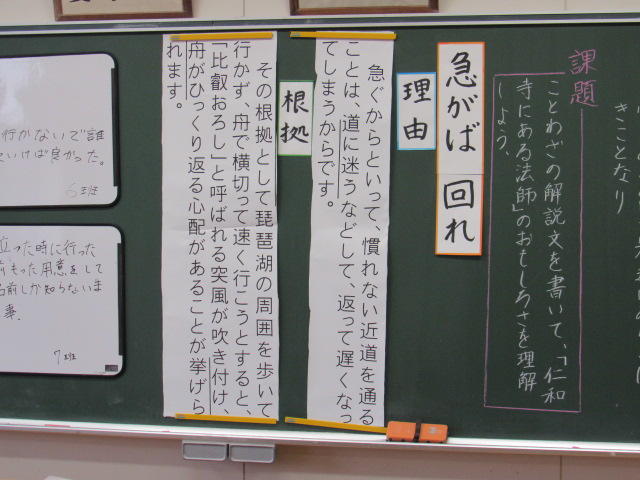 きことなり
課題
ことわざの解説文を書いて、「仁和
寺にある法師」のおもしろさを理解
しよう。
急がば 回れ
理由
急ぐからといって、慣れない近道を通る
ことは、道に迷うなどして、返って遅くなっ
てしまうからです。
根拠
その根拠として琵琶湖の周囲を歩いて
行かず、舟で横切って速く行こうとすると、
「比叡おろし」と呼ばれる突風が吹き付け、
舟がひっくり返る心配があることが挙げら
れます。
行かないで誰
いけば良かった。
6班
立った時に行った
もった用意をして
名前しか知らないま
事.
7班